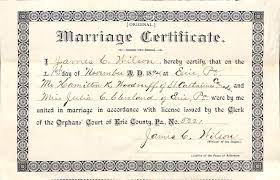 [ORIGINAL]
Marriage Certificate.
I James C. Wilson, hereby certify that on the
day of November A. D. at Erie, Pa
Mr. Hamilton K. Woodruff of St. Catharines
and Miss Julia C. Cleveland of Erie, Pa were by me
united in marriage in accordance with license issued by the Clerk
of the Orphans' Court of Erie County, Pa., No. 5221
James C. Wilson